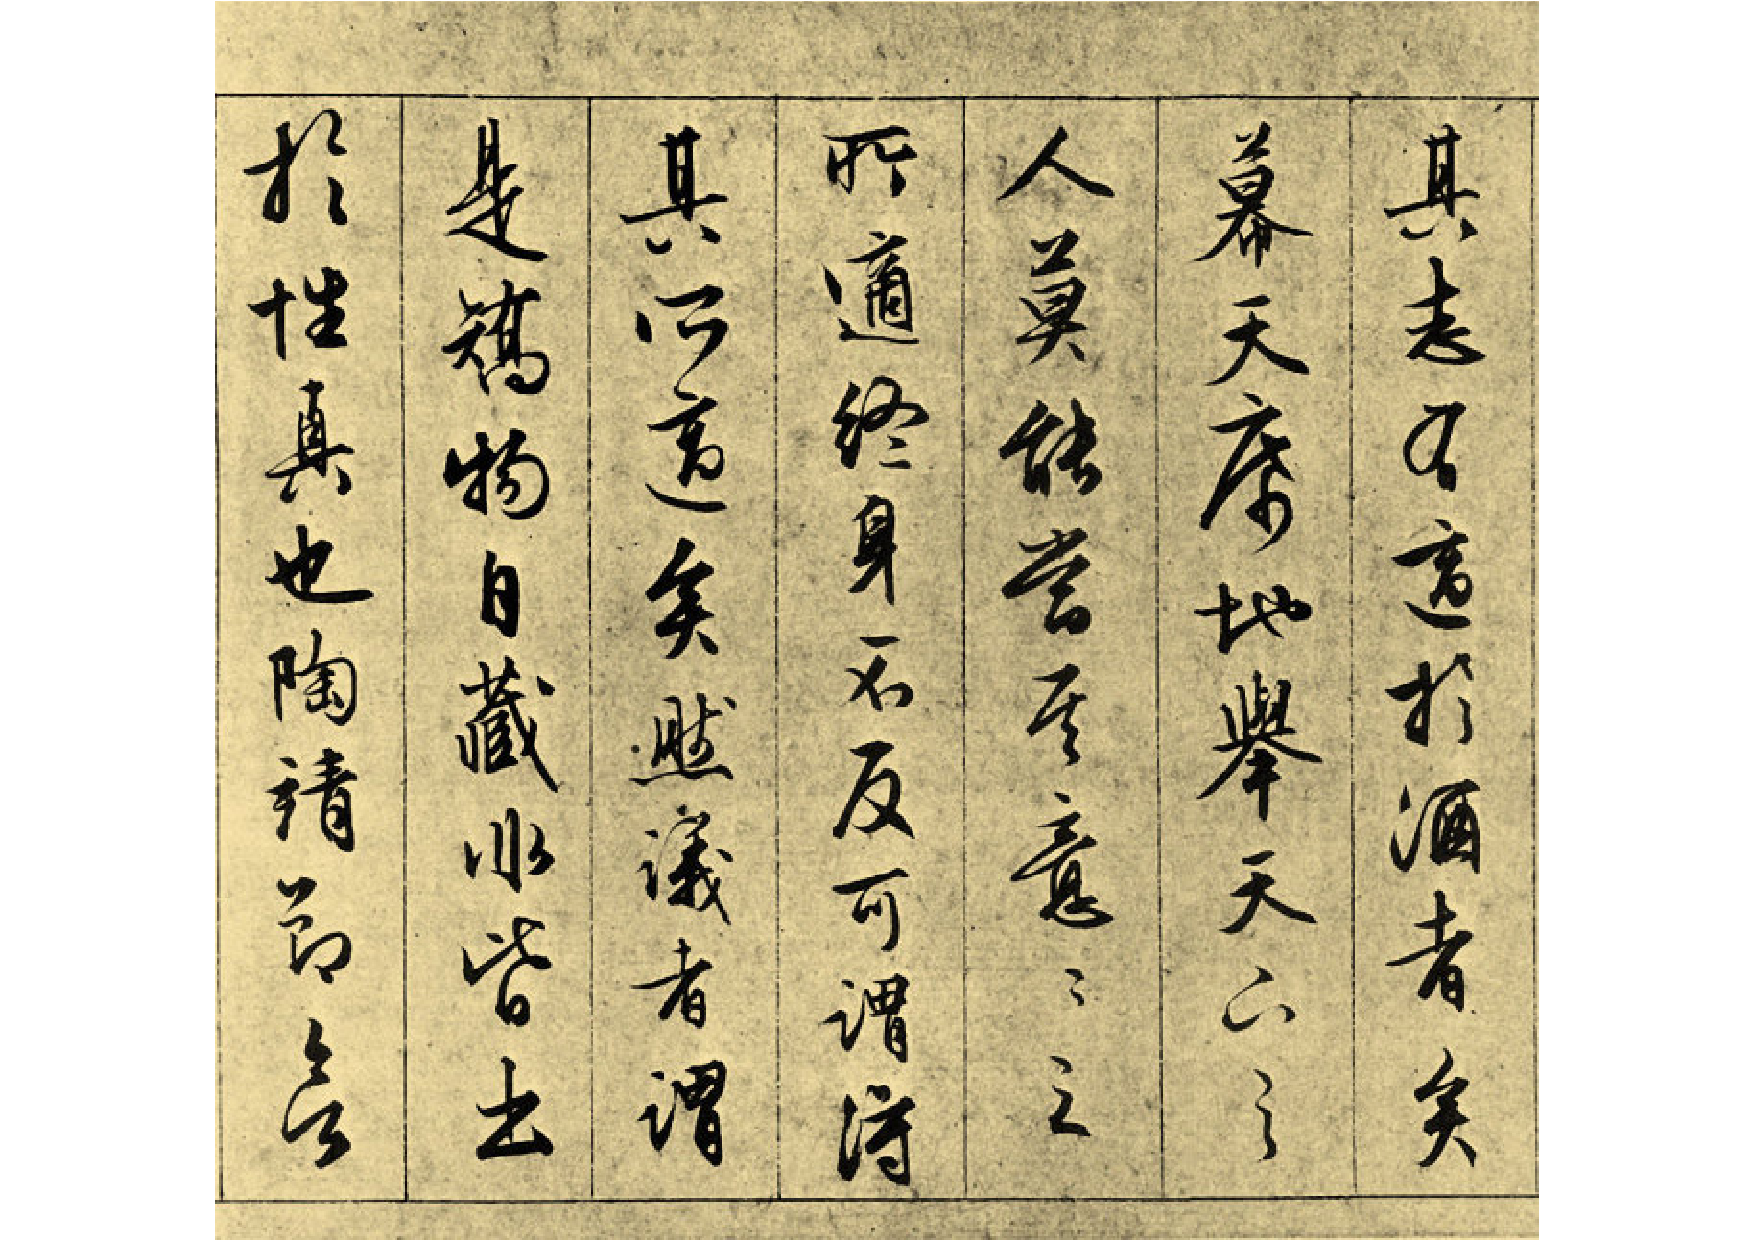 其志有適於酒者矣
幕天席地舉天下之
人莫能嘗其意〻之
所適終身不反可謂得
其所適矣然議者謂
是矯物自藏非皆出
於性真也陶靖節